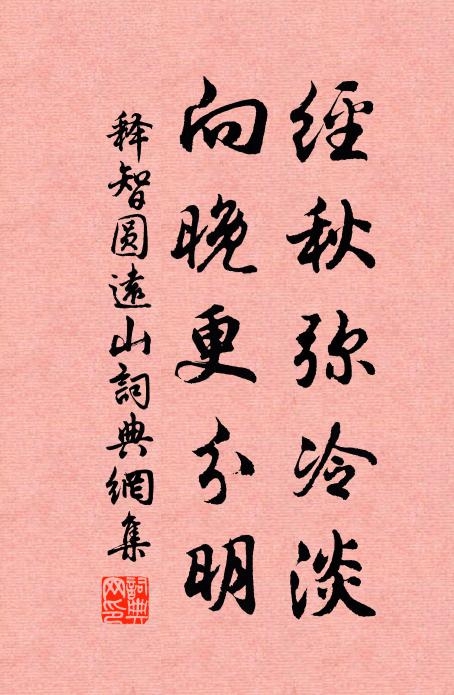 經秋弥冷淡
向晚更分明
释智圆遠山詞典網集
詞典網印